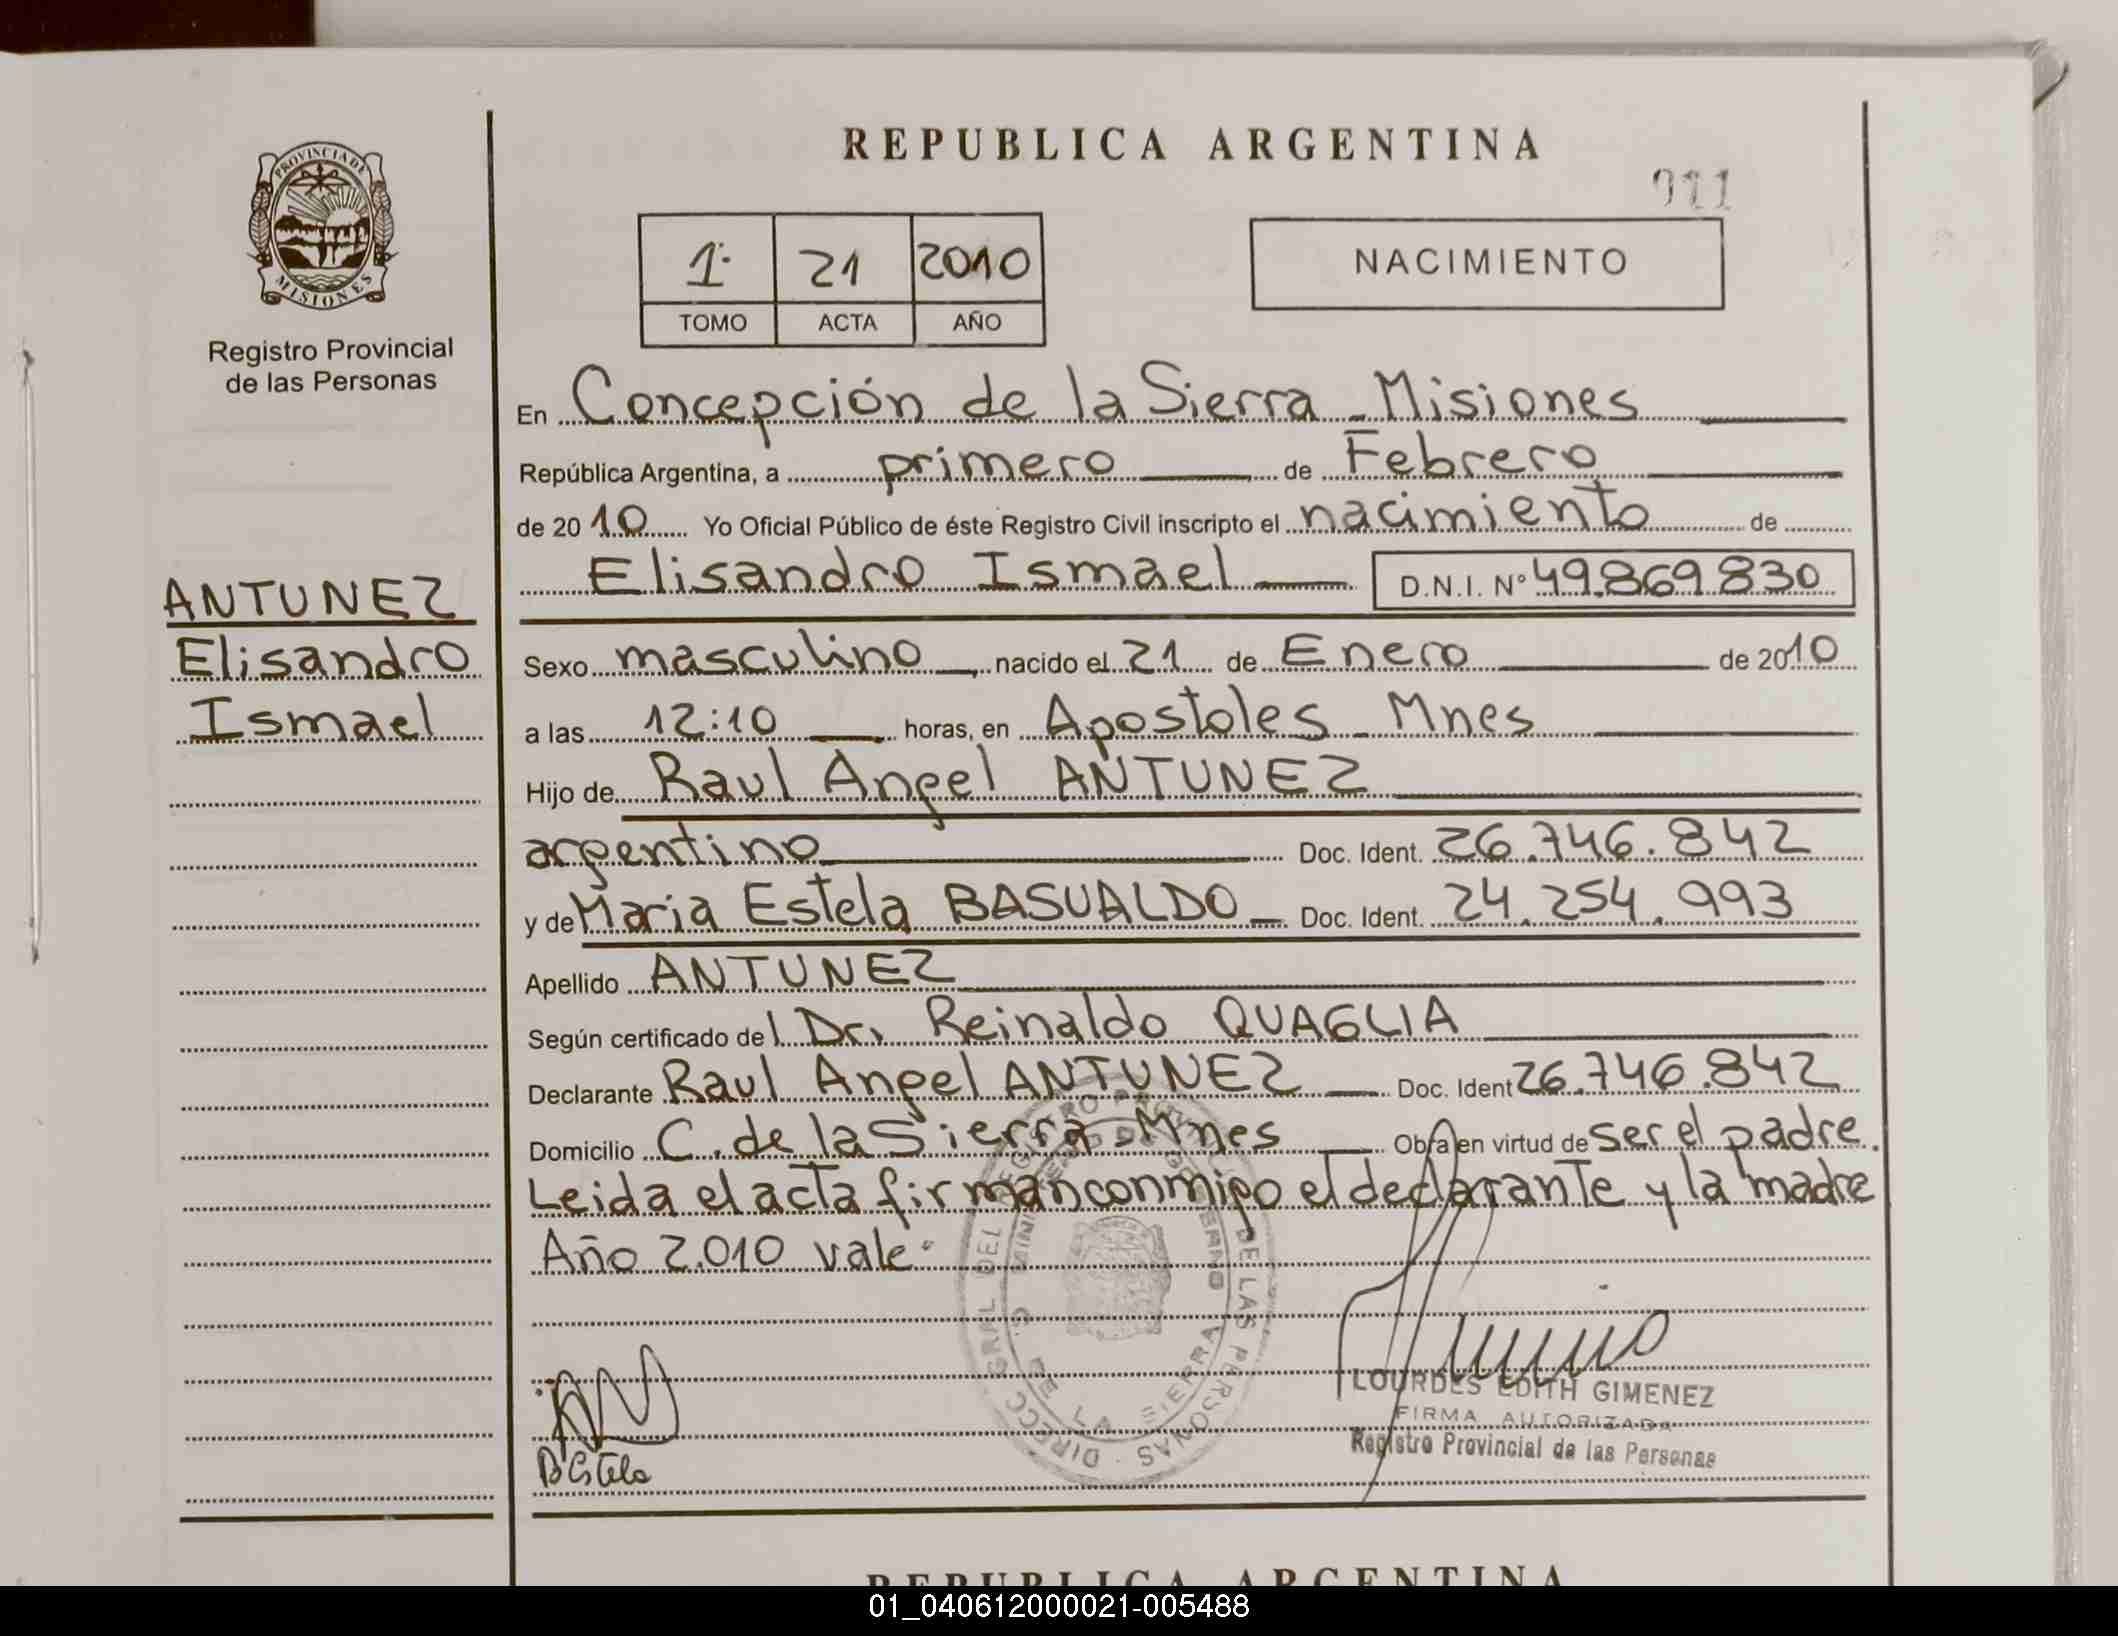 REPUBLICA ARGENTINA
011
PROVINCIA DE
MISIONES
Registro Provincial
de las Personas
1º 21 2010
TOMO ACTA AÑO
NACIMIENTO
En Concepción de la Sierra - Misiones
República Argentina, a primero de Febrero
de 2010 Yo Oficial Público de éste Registro Civil inscripto el nacimiento de
Elisandro Ismael D.N.I. Nº 49.869.830
ANTUNEZ
Elisandro
Ismael
Sexo masculino, nacido el 21 de Enero de 2010
a las 12:10 horas, en Apostoles - Mnes
Hijo de Raul Angel ANTUNEZ
argentino Doc. Ident. 26.746.842
y de Maria Estela BASUALDO Doc. Ident. 24.254.993
Apellido ANTUNEZ
Según certificado del Dr. Reinaldo QUAGLIA
Declarante Raul Angel ANTUNEZ Doc. Ident 26.746.842
Domicilio C. de la Sierra - Mnes Obra en virtud de ser el padre.
Leida el acta firman conmigo el declarante y la madre
Año 2.010 vale.
LOURDES EDITH GIMENEZ
FIRMA AUTORIZADA
Registro Provincial de las Personas
B Estela
REPUBLICA ARGENTINA
01_040612000021-005488